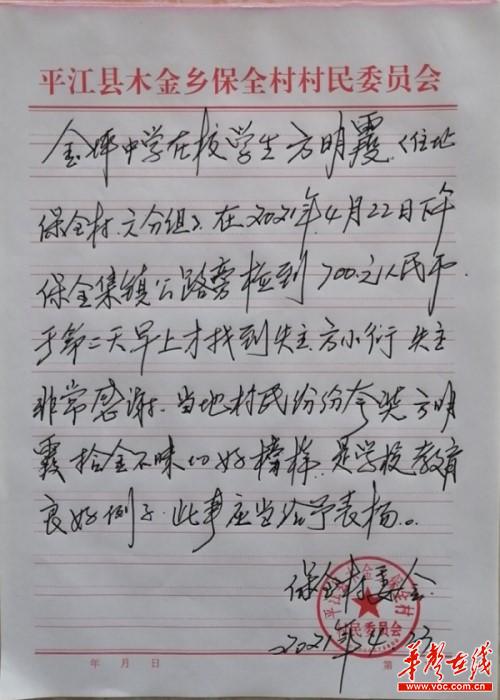 平江县木金乡保全村村民委员会
金坪中学在校学生方明霞（住址
保全村六分组）在2021年4月22日下午
保全集镇公路旁检到700元人民币.
于第二天早上才找到失主方小衍 失主
非常感谢. 当地村民份份夸奖方明
霞拾金不昧的好榜样. 是学校教育
良好例子. 此事应当给予表杨。
保全村委会
2021年4.23
平江县木金乡保全村
村民委员会
年 月 日
第
华声在线
www.voc.com.cn